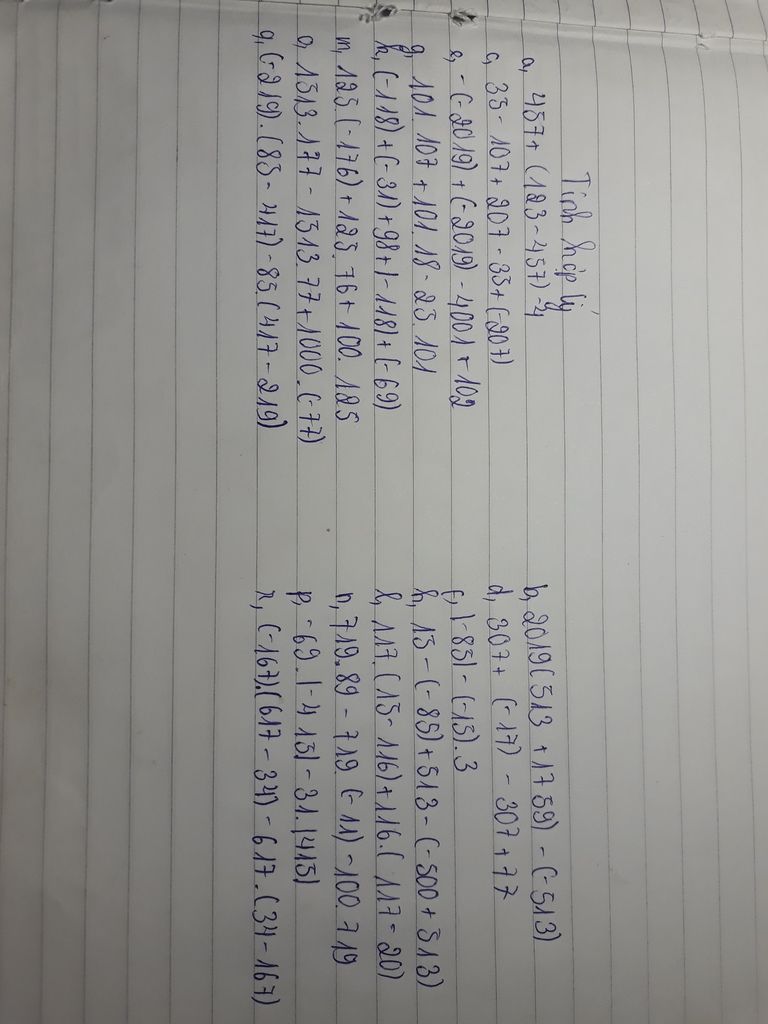 Tính hợp lý
a, 457 + (123 - 457) - 4
b, 2019(513 + 1759) - (-513)
c, 35 - 107 + 207 - 35 + (-207)
d, 307 + (-17) - 307 + 77
e, -(-2019) + (-2019) - 4001 + 102
f, |-85| - (-15).3
g, 101.107 + 101.18 - 25.101
h, 15 - (-85) + 513 - (-500 + 513)
k, (-118) + (-31) + 98 + |-118| + (-69)
l, 117.(15 - 116) + 116.(117 - 20)
m, 125(-176) + 125.76 + 100.125
n, 719.89 - 719.(-11) - 100.719
o, 1513.177 - 1513.77 + 1000.(-77)
p, -69.|-415| - 31.|415|
q, (-219).(85 - 417) - 85.(417 - 219)
r, (-167).(617 - 34) - 617.(34 - 167)